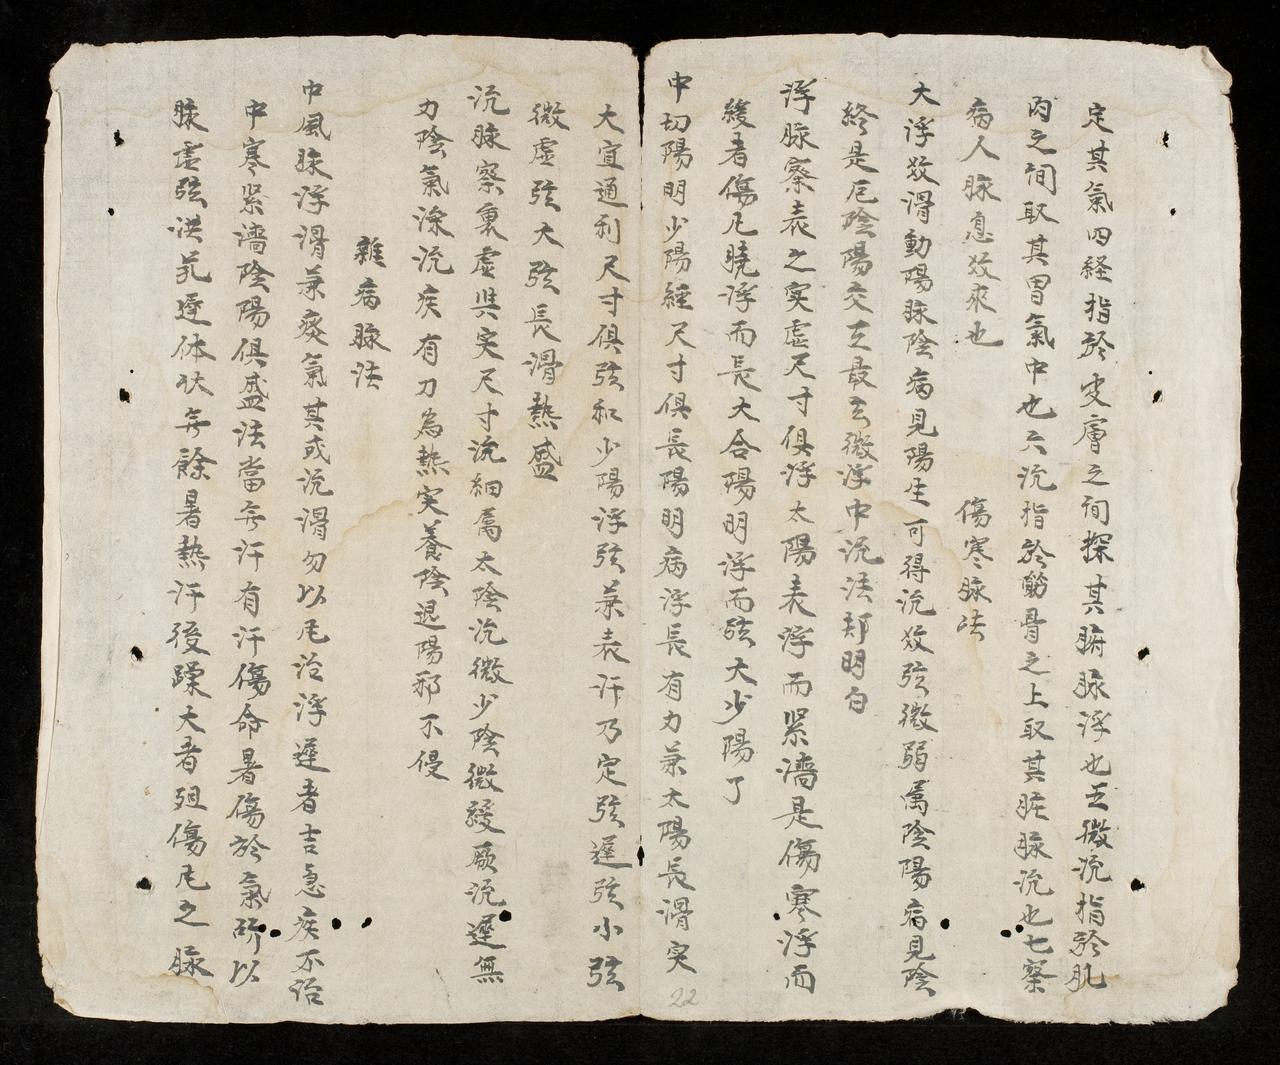 定其氣四経指於皮膚之间探其腑脉浮也五微沉指於肌
肉之间取其胃氣中也六沉指於筋骨之上取其脏脉沉也七察
病人脉息数來也 傷寒脉法
大浮数滑動陽脉陰病見陽生可得沉数弦微弱属陰陽病見陰
終是厄陰陽交互最玄微浮中沉法却明白
浮脉察表之实虚尺寸俱浮太陽表浮而紧濇是傷寒浮而
緩者傷凡曉浮而長大合陽明浮而弦大少陽了
中切陽明少陽經尺寸俱長陽明病浮長有力兼太陽長滑实
大宜通利尺寸俱弦和少陽浮弦兼表汗乃定弦遲弦小弦
微虚弦大弦長滑熱盛
沉脉察裏虚與实尺寸沉細属太陰沉微少陰微緩厥沉遲無
力陰氣深沉疾有力為熱实養陰退陽邪不侵
雜病脉法
中風脉浮滑兼痰氣其或沉滑勿以凡治浮遲者吉急疾不治
中寒紧濇陰陽俱盛法當无汗有汗傷命暑傷於氣所以
脉虚弦洪芤遲体状无餘暑熱汗後躁大者殂傷凡之脉
22